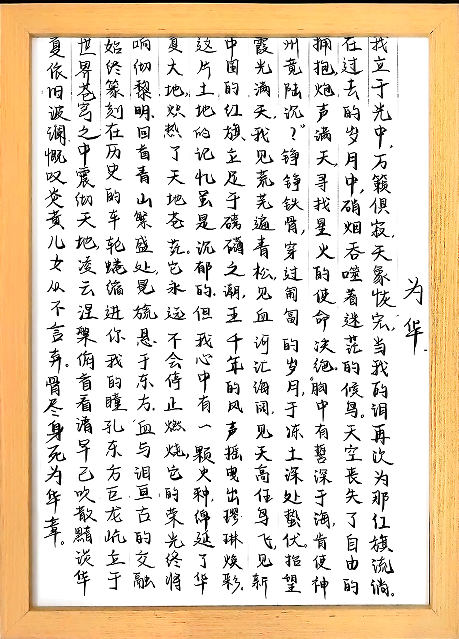 为华
我立于光中,万籁俱寂,天象恢宏,当我的泪再次为那红旗流淌。
在过去的岁月中,硝烟吞噬着迷茫的候鸟,天空丧失了自由的
拥抱,炮声满天寻找星火的使命决绝。胸中有誓深于海,肯使神
州竟陆沉?铮铮铁骨,穿过匍匐的岁月,于冻土深处蛰伏。抬望
霞光满天,我见荒芜遍青松,见血河汇海阔,见天高任鸟飞,见新
中国的红旗立足于磅礴之巅,五千年的风声摇曳出璆琳焕彩。
这片土地的记忆虽是沉郁的,但我心中有一颗火种,绵延了华
夏大地,炽热了天地苍茫。它永远不会停止燃烧,它的荣光终将
响彻黎明。回首青山繁盛处,晃旒悬于东方,血与泪亘古的交融
始终篆刻在历史的车轮,蜷缩进你我的瞳孔,东方巨龙屹立于
世界苍穹之中,震彻天地,凌云涅槃,俯首看清早已吹散黯淡,华
夏依旧波澜,慨叹炎黄儿女从不言弃。骨尽身死为华章。